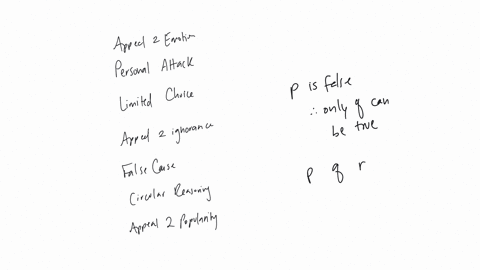 Appeal 2 Emotion
Personal Attack
Limited Choice
Appeal 2 ignorance
False Cause
Circular Reasoning
Appeal 2 Popularity
p is false
∴ only q can
be true
p q r